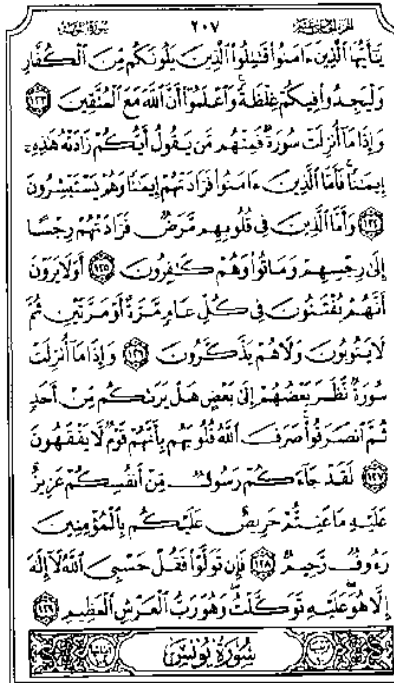 سورة التوبة ٢٠٧ الجزء الحادي عشر
يَٰٓأَيُّهَا ٱلَّذِينَ ءَامَنُوا۟ قَٰتِلُوا۟ ٱلَّذِينَ يَلُونَكُم مِّنَ ٱلْكُفَّارِ
وَلْيَجِدُوا۟ فِيكُمْ غِلْظَةً وَٱعْلَمُوٓا۟ أَنَّ ٱللَّهَ مَعَ ٱلْمُتَّقِينَ ١٢٣
وَإِذَا مَآ أُنزِلَتْ سُورَةٌ فَمِنْهُم مَّن يَقُولُ أَيُّكُمْ زَادَتْهُ هَٰذِهِۦٓ
إِيمَٰنًا فَأَمَّا ٱلَّذِينَ ءَامَنُوا۟ فَزَادَتْهُمْ إِيمَٰنًا وَهُمْ يَسْتَبْشِرُونَ
١٢٤ وَأَمَّا ٱلَّذِينَ فِى قُلُوبِهِم مَّرَضٌ فَزَادَتْهُمْ رِجْسًا
إِلَىٰ رِجْسِهِمْ وَمَاتُوا۟ وَهُمْ كَٰفِرُونَ ١٢٥ أَوَلَا يَرَوْنَ
أَنَّهُمْ يُفْتَنُونَ فِى كُلِّ عَامٍ مَّرَّةً أَوْ مَرَّتَيْنِ ثُمَّ
لَا يَتُوبُونَ وَلَا هُمْ يَذَّكَّرُونَ ١٢٦ وَإِذَا مَآ أُنزِلَتْ
سُورَةٌ نَّظَرَ بَعْضُهُمْ إِلَىٰ بَعْضٍ هَلْ يَرَىٰكُم مِّنْ أَحَدٍ
ثُمَّ ٱنصَرَفُوا۟ صَرَفَ ٱللَّهُ قُلُوبَهُم بِأَنَّهُمْ قَوْمٌ لَّا يَفْقَهُونَ
١٢٧ لَقَدْ جَآءَكُمْ رَسُولٌ مِّنْ أَنفُسِكُمْ عَزِيزٌ
عَلَيْهِ مَا عَنِتُّمْ حَرِيصٌ عَلَيْكُم بِٱلْمُؤْمِنِينَ
رَءُوفٌ رَّحِيمٌ ١٢٨ فَإِن تَوَلَّوْا۟ فَقُلْ حَسْبِىَ ٱللَّهُ لَآ إِلَٰهَ
إِلَّا هُوَ عَلَيْهِ تَوَكَّلْتُ وَهُوَ رَبُّ ٱلْعَرْشِ ٱلْعَظِيمِ ١٢٩
سُورَةُ يُونُسَ